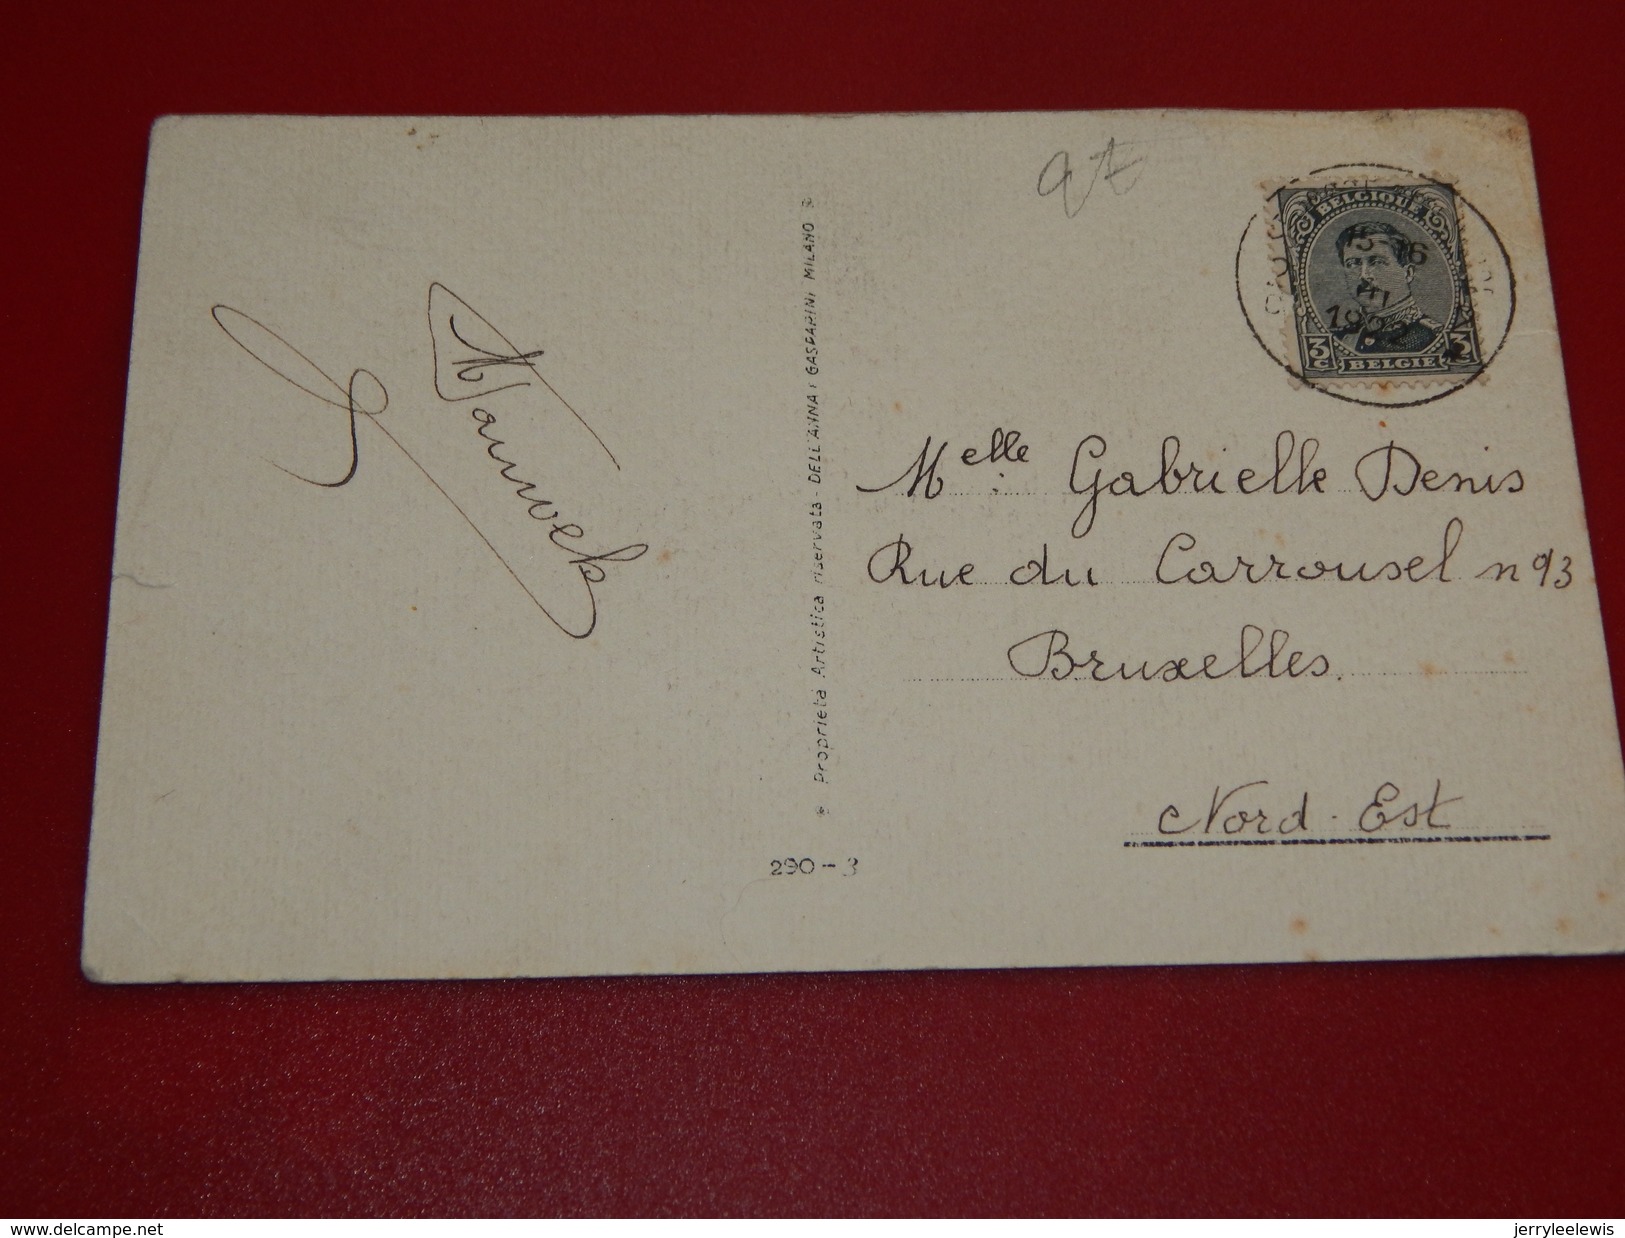 BELGIQUE
15-16
1922
3c
3c
BELGIE
Proprieta Artistica riservata - DELL'ANNA & GASPARINI MILANO
Melle: Gabrielle Denis
Rue du Carrousel n 93
Bruxelles.
Nord. Est
290-3
www.delcampe.net
jerryleelewis